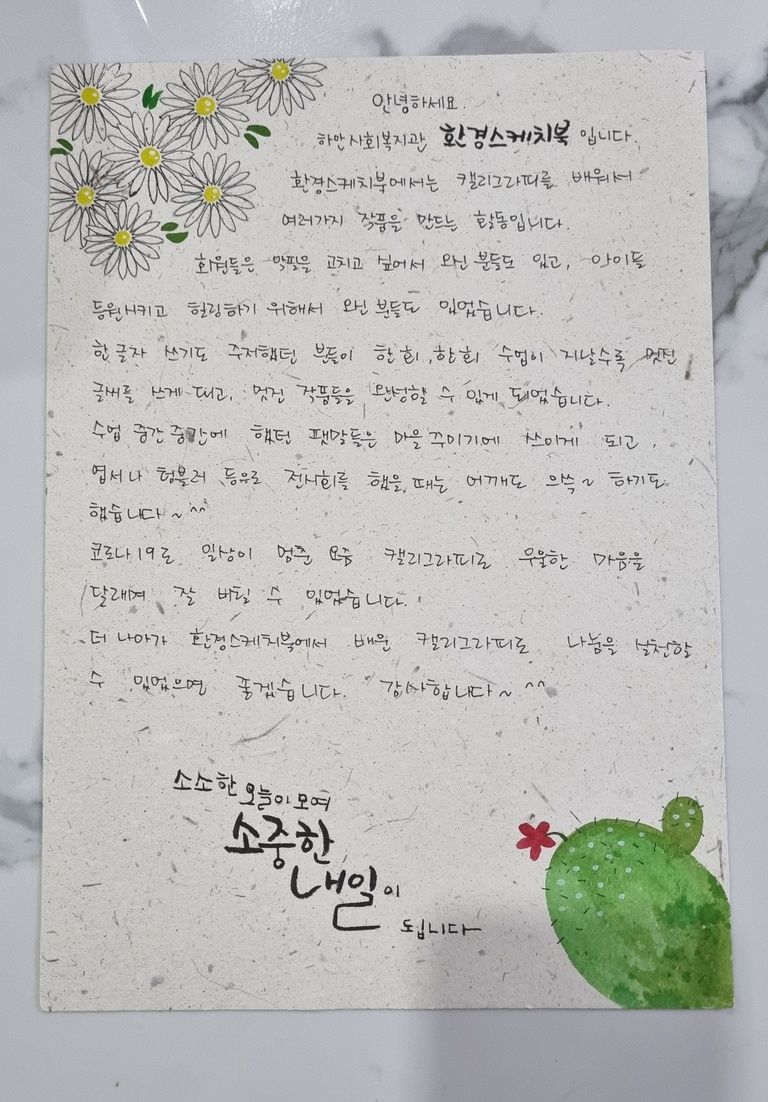 안녕하세요.
하안사회복지관 환경스케치북 입니다.
환경스케치북에서는 캘리그라피를 배워서
여러가지 작품을 만드는 활동입니다.
회원들은 악필을 고치고 싶어서 오신 분들도 있고, 아이들
등원시키고 힐링하기 위해서 오신 분들도 있었습니다.
한글자 쓰기도 주저했던 분들이 한 회, 한 회 수업이 지날수록 멋진
글씨를 쓰게 되고, 멋진 작품들을 완성할 수 있게 되었습니다.
수업 중간중간에 했던 팻말들은 마을 꾸미기에 쓰이게 되고,
엽서나 텀블러 등으로 전시회를 했을 때는 어깨도 으쓱~ 하기도
했습니다~^^
코로나19로 일상이 멈춘 요즘 캘리그라피로 우울한 마음을
달래며 잘 버틸 수 있었습니다.
더 나아가 환경스케치북에서 배운 캘리그라피로 나눔을 실천할
수 있었으면 좋겠습니다. 감사합니다~^^
소소한 오늘이 모여
소중한
내일이
됩니다